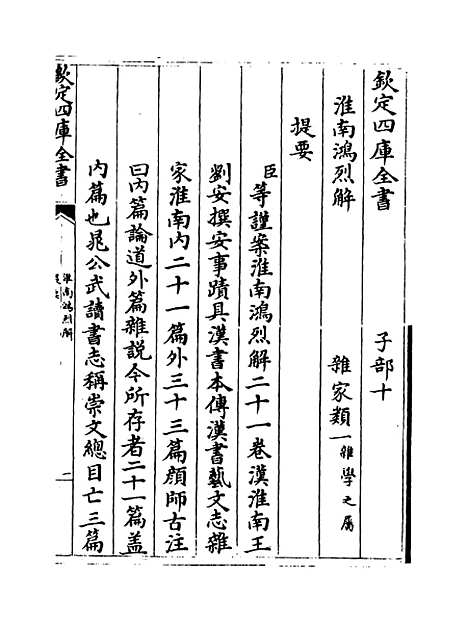 欽定四庫全書 子部十
淮南鴻烈解 雜家類一雜學之屬
提要
臣等謹案淮南鴻烈解二十一卷漢淮南王
劉安撰安事蹟具漢書本傳漢書藝文志雜
家淮南内二十一篇外三十三篇顔師古注
曰内篇論道外篇雜説今所存者二十一篇蓋
内篇也晁公武讀書志稱崇文總目亡三篇
欽定四庫全書
淮南鴻烈解
提要
一